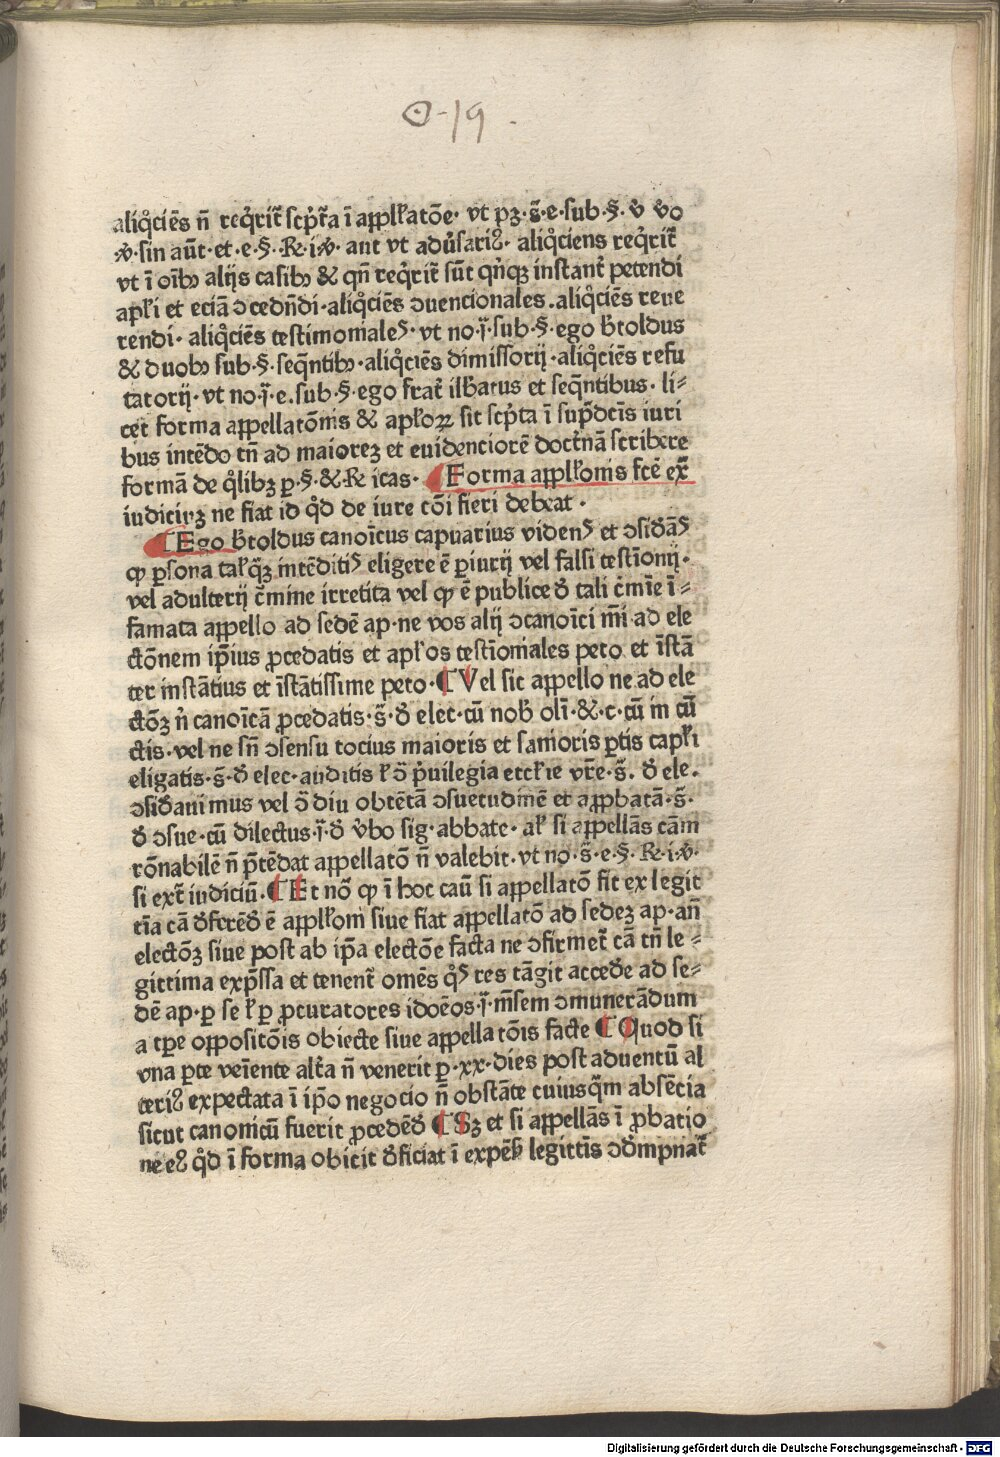 O-19.
aliqͦciēs n̄ reqͥrit᷑ scͥpt᷑a ī aꝑpllatōe· vt pꝫ·s̄·e·sub·§·v̊ vo
ꝟ·sin aūt·et·e·§·℞·i·ꝟ· aut vt adūsariꝰ· aliqͦciens reqͥrit᷑
vt ī oībꝫ alijs casibꝫ & qn̄ reqͥrit᷑ sūt qͥnqꝫ instant᷑ petendi
apłi et eciā ꝯcedn̄di·aliqͦciēs ꝯuencionales·aliqͦciēs reue
rendi· aliqͦciēs testimonialeꝭ· vt no·ī·sub·§·ego b̄toldus
& duobꝫ sub·§·seq̄ntibꝫ·aliqͦciēs dimissorij·aliqͦciēs refu
tatorij·vt no·ī·e·sub·§·ego frat᷑ ilb̄atus et seq̄ntibus· li⸗
cet forma appellatōnis & apłoꝝ sit scͥpta ī sup̄dcīs iuri
bus intēdo tn̄ ad maioreꝫ et euidenciorē doct᷑nā scribere
formā de qͦlibꝫ ꝑ·§·&·℞ icas· ¶ Forma appłłonis fcē ex̄
iudiciuꝫ ne fiat id qͦd de iure cōi fieri debeat·
¶ Ego b̄toldus canoīcus capuarius videnꝭ et ꝯsid̄āꝭ
ꝙ ꝑsona talꝫq̄ꝫ intēditiꝭ eligere ē ꝑiurij vel falsi testīonij·
vel adulterij c̄mine irretita vel ꝙ ē publice d̄ tali c̄mīe ī⸗
famata appello ad sedē ap·ne vos alij ꝯcanoīci m̄i ad ele
ctōnem ip̄ius ꝓcedatis et apłos testīoniales peto et īstā
ter instātius et īstātissime peto·¶ Vel sic appello ne ad ele
ctōꝫ n̄ canoīcā ꝓcedatis·s̄·d̄ elec·cū nob̄ olī·&·c·cū in cū
ctis·vel ne sn̄ ꝯsensu tocius maioris et sanioris ꝑtis capłi
eligatis·s̄·d̄ elec·auditis ł ꝯ̄ p̄uilegia etcłie vr̄e·s̄· d̄ ele·
ꝯsid̄auimus vel ꝯ̄ diu obtētā ꝯsuetudinē et aꝓbatā·s̄·
d̄ ꝯsue·cū dilectus·ī·d̄ v̄bo sig·abbate· ał si appellās cām
rōnabilē n̄ p̄tēdat appellatō n̄ valebit·vt no·s̄·e·§·℞·i·ꝟ·
si ext᷑ iudiciū·¶ Et nō ꝙ ī hoc caū si appellatō fit ex legit
tīa cā d̄ferēd̄ ē appłłoni siue fiat appellatō ad sedeꝫ ap·an̄
electōꝫ siue post ab ip̄a electōe facta ne ꝯfirmet᷑ cā tn̄ le⸗
gittima exp̄ssa et tenent᷑ omēs qͦꝭ res tāgit accede̅ ad se⸗
dē ap·ꝑ se ł ꝑ ꝓcuratores idoēos·ī·m̄sem ꝯmunerādum
a tꝑe oppositōis obiecte siue appellatōis facte ¶ Quod si
vna ꝑte veīente alt᷑a n̄ venerit ꝑ·xx·dies post aduentū al
teriꝰ expectata ī ip̄o negocio n̄ obstāte cuiusq̄m absēcia
sicut canonicū fuerit ꝓcedēd̄ ¶ Sꝫ et si appellās ī ꝓbatio
ne eꝰ qͦd ī forma obicit d̄ficiat ī expēß legittīs ꝯd̄mpnat᷑
Digitalisierung gefördert durch die Deutsche Forschungsgemeinschaft · DFG